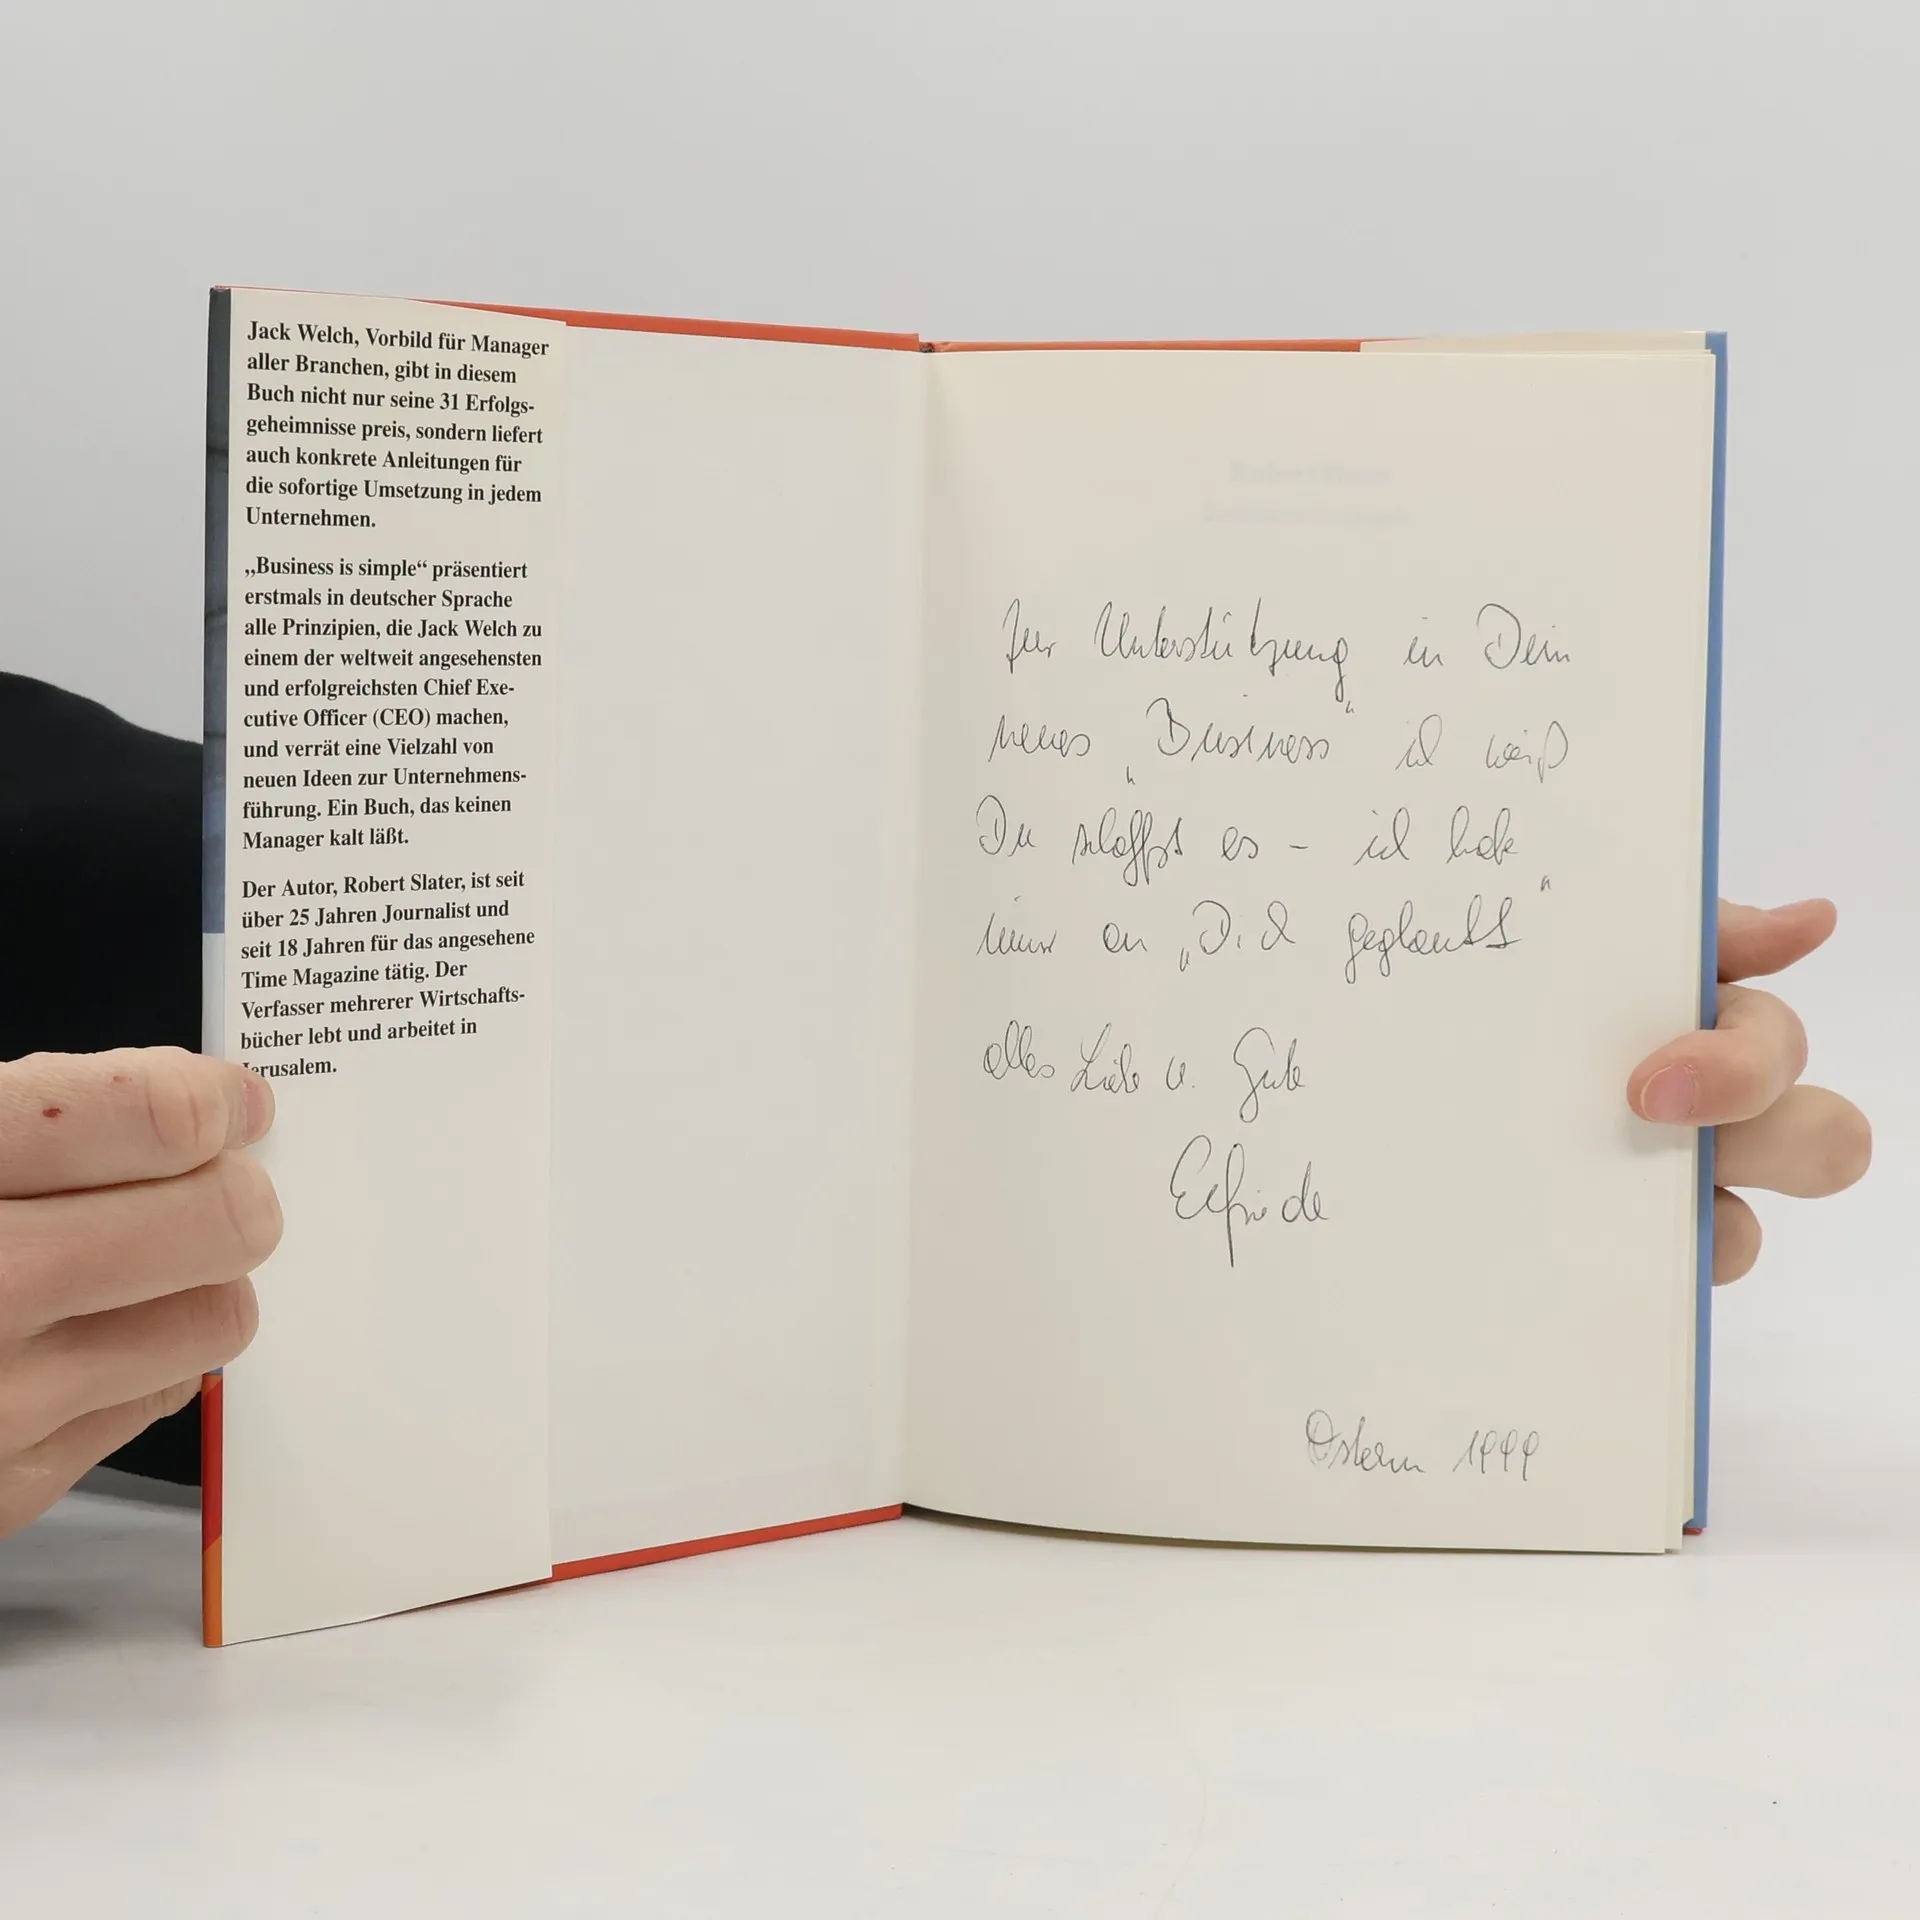 Jack Welch, Vorbild für Manager
aller Branchen, gibt in diesem
Buch nicht nur seine 31 Erfolgs-
geheimnisse preis, sondern liefert
auch konkrete Anleitungen für
die sofortige Umsetzung in jedem
Unternehmen.
„Business is simple“ präsentiert
erstmals in deutscher Sprache
alle Prinzipien, die Jack Welch zu
einem der weltweit angesehensten
und erfolgreichsten Chief Exe-
cutive Officer (CEO) machen,
und verrät eine Vielzahl von
neuen Ideen zur Unternehmens-
führung. Ein Buch, das keinen
Manager kalt läßt.
Der Autor, Robert Slater, ist seit
über 25 Jahren Journalist und
seit 18 Jahren für das angesehene
Time Magazine tätig. Der
Verfasser mehrerer Wirtschafts-
bücher lebt und arbeitet in
Jerusalem.
Zur Unterstützung in Dein
neues „Business“ ich weiß
Du schaffst es – ich habe
immer an „Dich geglaubt“
alles Liebe u. Gute
Elfriede
Ostern 1999